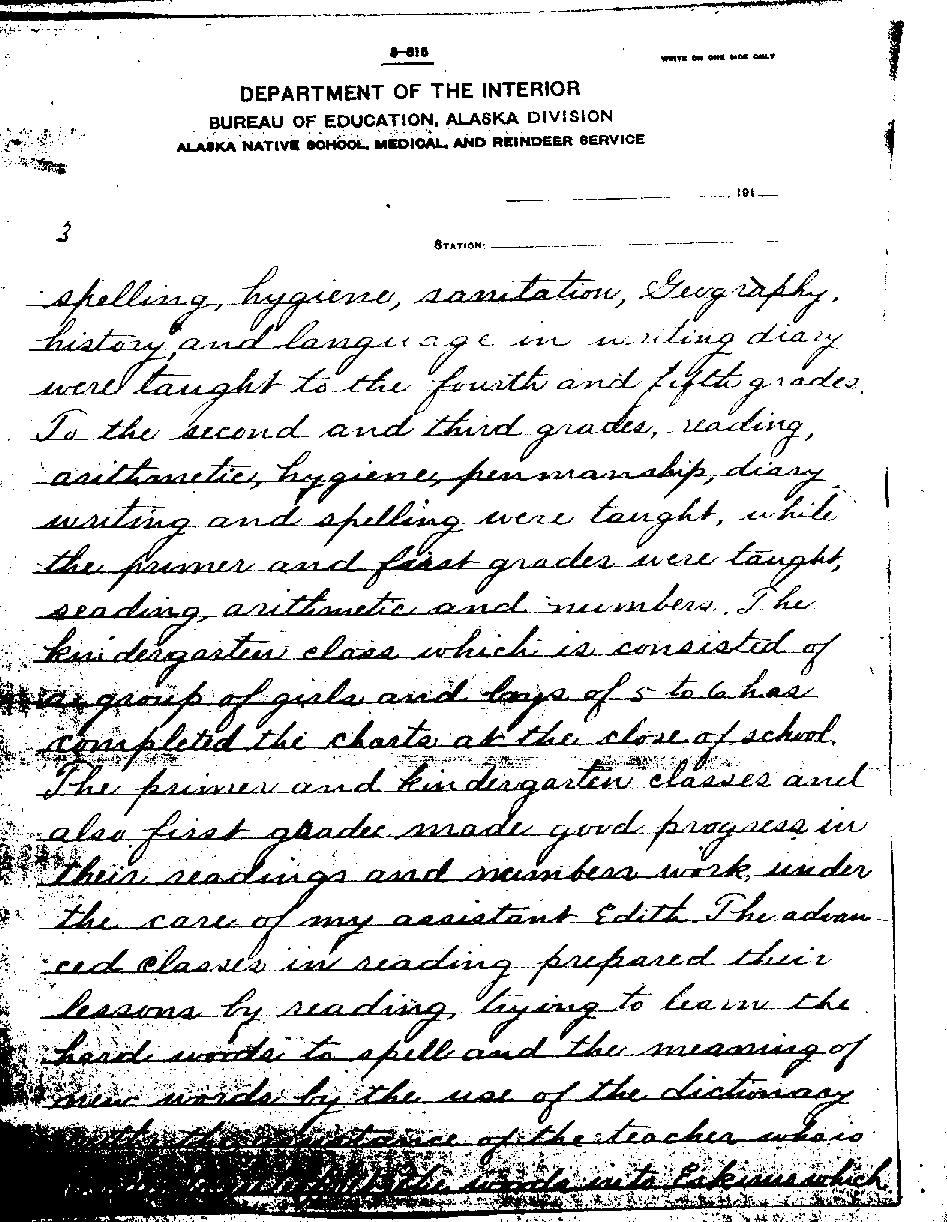 8-615
WRITE ON ONE SIDE ONLY
DEPARTMENT OF THE INTERIOR
BUREAU OF EDUCATION, ALASKA DIVISION
ALASKA NATIVE SCHOOL, MEDICAL, AND REINDEER SERVICE
191
3
STATION:
spelling, hygiene, sanitation, Geography,
history, and language in writing diary
were taught to the fourth and fifth grades.
To the second and third grades, reading,
arithmetic, hygiene, penmanship, diary
writing and spelling were taught, while
the primer and first grades were taught,
reading, arithmetic and numbers. The
kindergarten class which is consisted of
a group of girls and boys of 5 to 6 has
completed the charts at the close of school.
The primer and kindergarten classes and
also first grades made good progress in
their readings and numbers work, under
the care of my assistant Edith. The advan
ced classes in reading prepared their
lessons by reading, trying to learn the
hard words to spell and the meaning of
new words by the use of the dictionary
with the assistance of the teacher who is
the words into Eskimo which